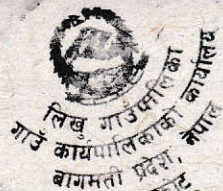 लिखु गाउँपालिका
गाउँ कार्यपालिकाको कार्यालय
बागमती प्रदेश, नेपाल